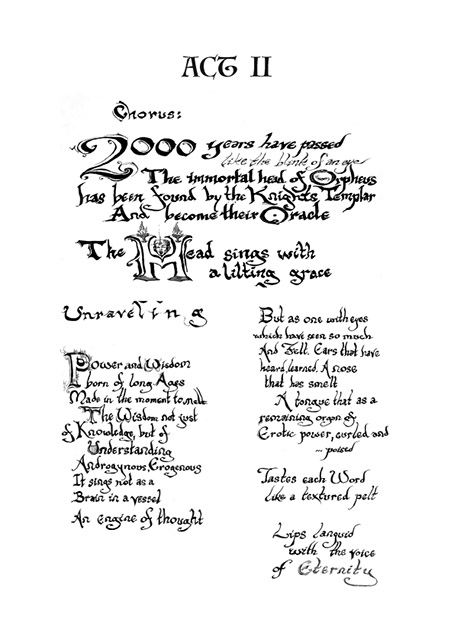 ACT II
Chorus:
2000 years have passed
like the blink of an eye
The immortal head of Orpheus
has been found by the Knights Templar
And become their Oracle
The Head sings with
a lilting grace
Unraveling
Power and Wisdom
born of long Ages
Made in the moment to melt
The Wisdom not just
of Knowledge, but of
Understanding
Androgynous, Erogenous
It sings not as a
Brain in a vessel
An engine of thought
But as one with eyes
which have seen so much
And Felt. Ears that have
heard, learned. A nose
that has smelt
A tongue that as a
remaining organ of
Erotic power, curled and
- poised
Tastes each Word
like a textured pelt
Lips languid
with the voice
of Eternity